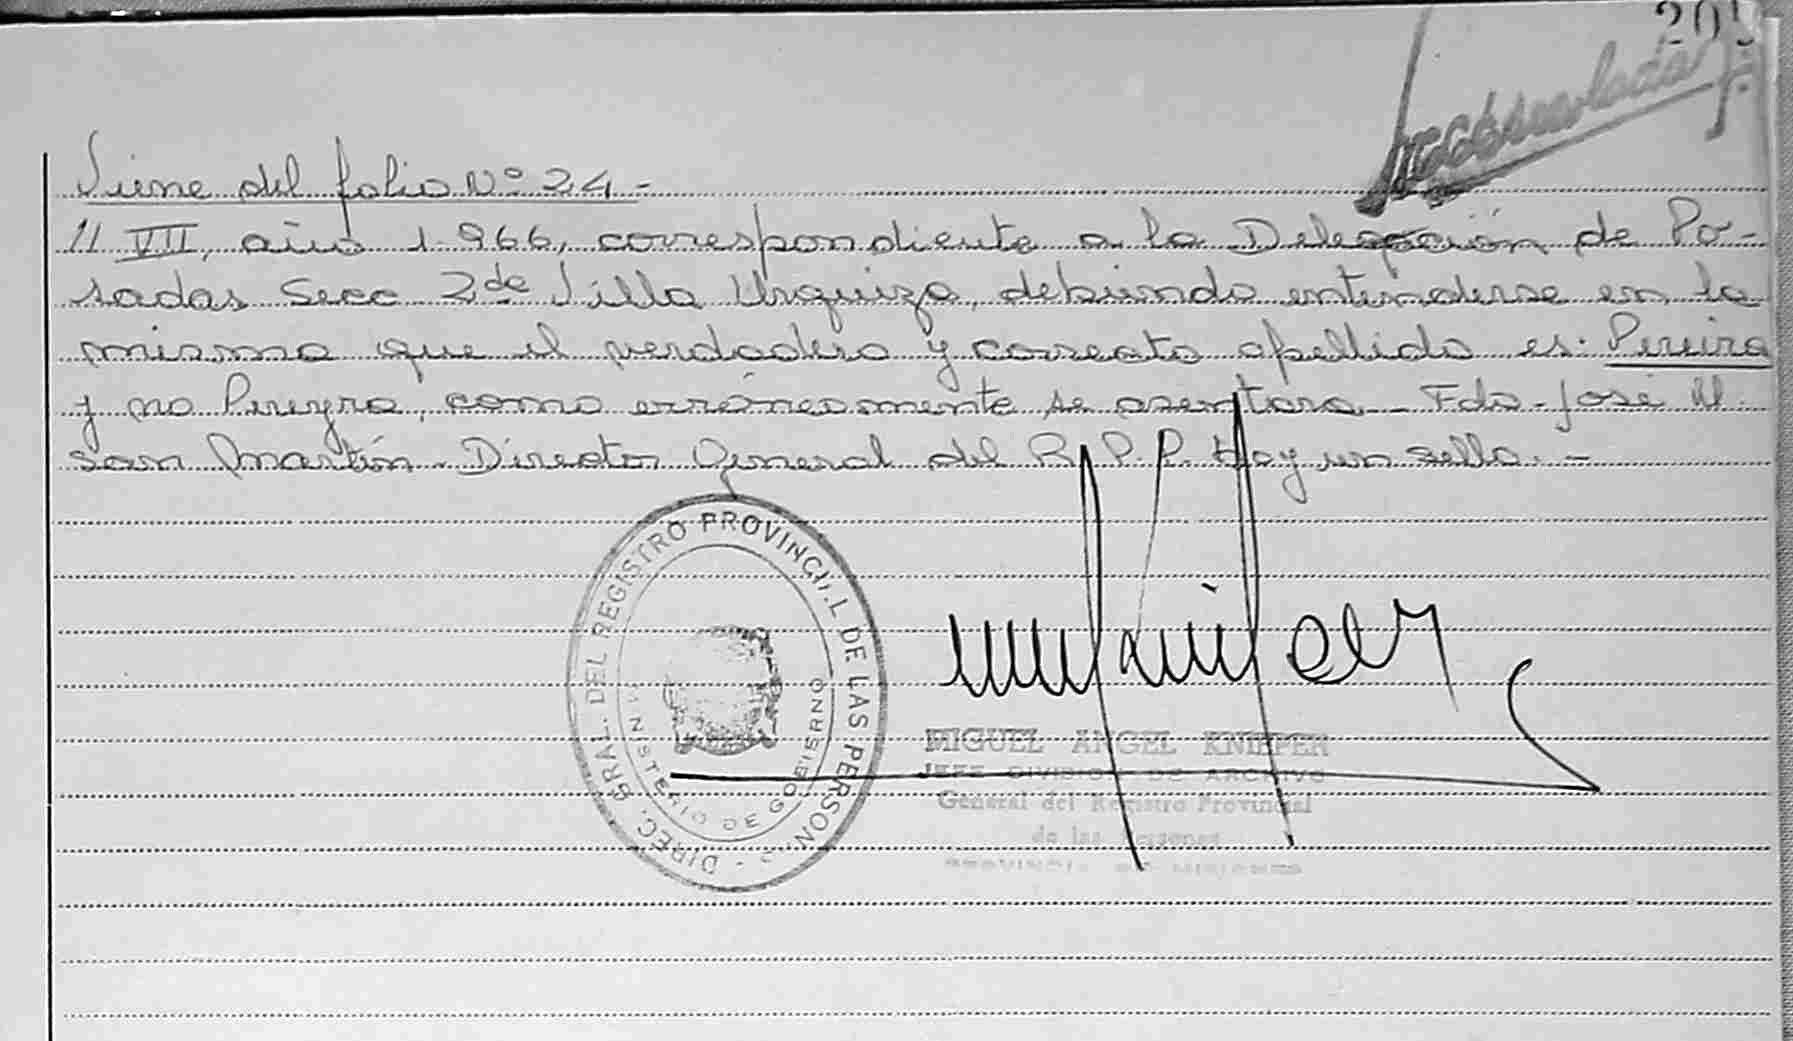 205
Microfilmado
Viene del folio Nº 24 -
11 VII, año 1.966, correspondiente a la Delegación de Po-
sadas Secc 2da Villa Urquiza, debiendo entenderse en la
misma que el verdadero y correcto apellido es: Pereira
y no Pereyra, como erróneamente se asentara - Fdo - José M.
San Martín - Director General del R.P.P. Hay un sello. -
DIREC. GRAL. DEL REGISTRO PROVINCIAL DE LAS PERSONAS -
MINISTERIO DE GOBIERNO
MIGUEL ANGEL KNIEPER
JEFE DIVISION DE ARCHIVO
General del Registro Provincial
de las Personas
PROVINCIA DE MISIONES